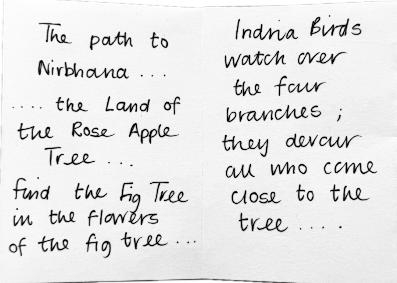 The path to
Nirbhana ...
.... the Land of
the Rose Apple
Tree ...
find the Fig Tree
in the flowers
of the fig tree ...
Indria Birds
watch over
the four
branches ;
they devour
all who come
close to the
tree ....